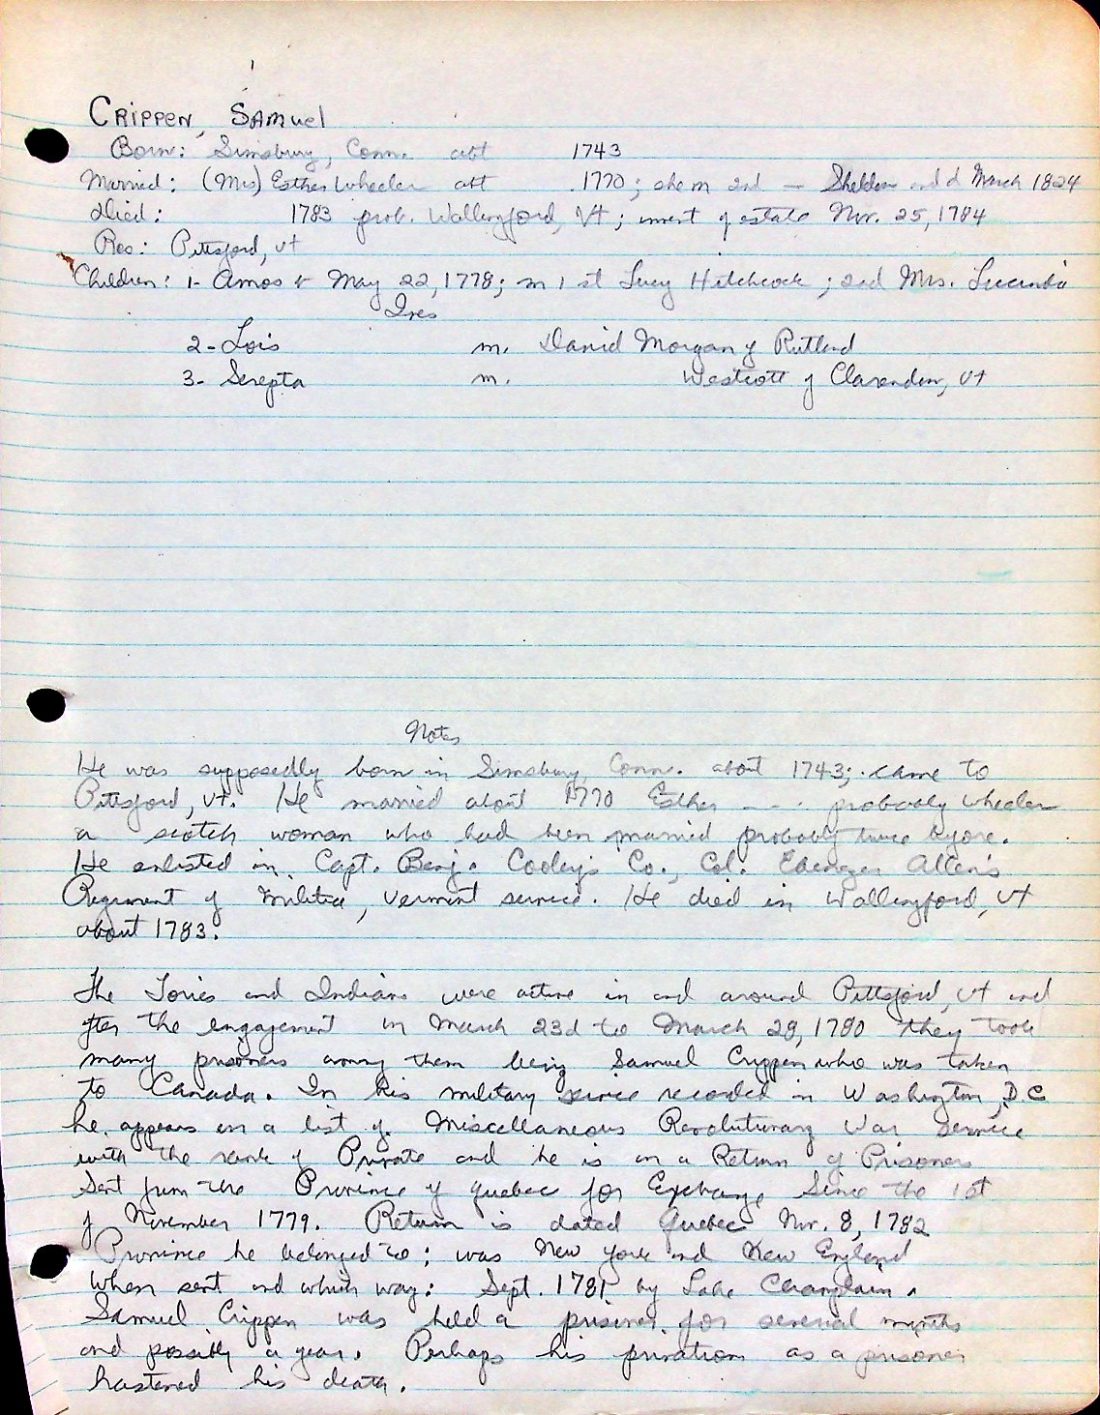 Crippen, Samuel
Born: Simsbury, Conn. abt 1743
Married: (Mrs) Esther Wheeler abt 1770; she m 2nd — Sheldon and d March 1824
Died: 1783 prob. Wallingford, Vt; invent of estate Nov. 25, 1784
Res: Pittsford, Vt
Children: 1- Amos b May 22, 1778; m 1 st Lucy Hitchcock; 2nd Mrs. Lucinda
Ives
2- Lois m. David Morgan of Rutland
3- Serepta m. Westcott of Clarendon, Vt
Notes
He was supposedly born in Simsbury, Conn. about 1743; came to
Pittsford, Vt. He married about 1770 Esther - - - probably Wheeler
a scotch woman who had been married probably twice before.
He enlisted in Capt. Benj. Cooley's Co., Col. Ebenezer Allen's
Regiment of Militia, Vermont service. He died in Wallingford, Vt
about 1783.
The Tories and Indians were active in and around Pittsford, Vt and
after the engagement in March 23d to March 28, 1780 they took
many prisoners among them being Samuel Crippen who was taken
to Canada. In his military service recorded in Washington, D.C
he appears on a list of Miscellaneous Revolutionary War Service
with the rank of Private and he is on a Return of Prisoners
Sent from the Province of Quebec for Exchange Since the 1st
of November 1779. Return is dated Quebec Nov. 8, 1782
Province he belonged to: was New York and New England
When sent and which way: Sept. 1781 by Lake Champlain.
Samuel Crippen was held a prisoner for several months
and possibly a year. Perhaps his privation as a prisoner
hastened his death.